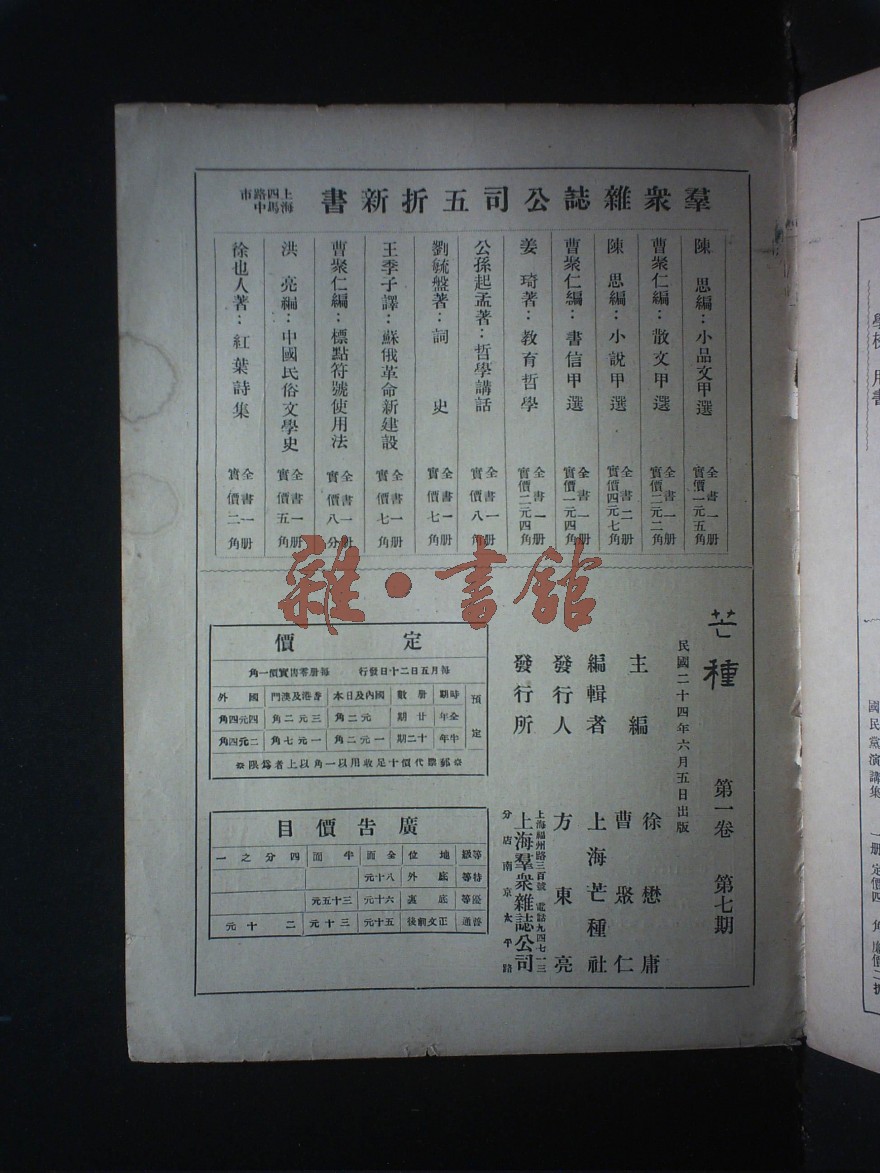 羣衆雜誌公司五折新書
上海四馬路中市
陳思編：小品文甲選 全書一册 實價一元五角
曹聚仁編：散文甲選 全書一册 實價二元二角
陳思編：小說甲選 全書二册 實價四元七角
曹聚仁編：書信甲選 全書一册 實價一元四角
姜琦著：教育哲學 全書一册 實價二元四角
公孫起孟著：哲學講話 全書一册 實價八角
劉毓盤著：詞史 全書一册 實價七角
王季子譯：蘇俄革命新建設 全書一册 實價七角
曹聚仁編：標點符號使用法 全書一册 實價八分
洪亮編：中國民俗文學史 全書一册 實價五角
徐也人著：紅葉詩集 全書一册 實價二角
雜·書館
芒種 第一卷 第七期
民國二十四年六月五日出版
主編 徐懋庸 曹聚仁
編輯者 上海芒種社
發行人 方東亮
發行所 上海羣衆雜誌公司
上海福州路三百號 電話九四七一三
分店南京太平路
定價
每月五日二十日發行 每册零售實價一角
預定
時期 册數 國內及日本 香港及澳門 國外
全年 廿期 二元 三元二角 四元四角
半年 十二期 一元二角 一元七角 二元四角
※郵票代價十足收用以一角以上者爲限※
廣告價目
等級 地位 全面 半面 四分之一
特等 底外 八十元
優等 底裏 六十元 三十五元
普通 正文前後 五十元 三十元 二十元
國民黨演講集 一册 定價四角